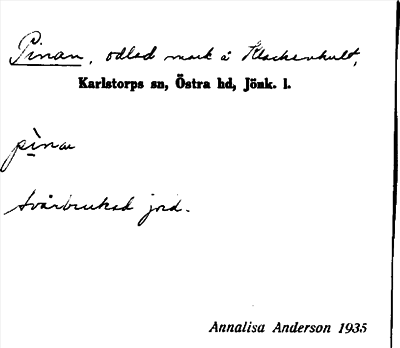 Pinan, odlad mark å Klackenhult,
Karlstorps sn, Östra hd, Jönk. l.
pìnan
svårbrukad jord.
Annalisa Anderson 1935